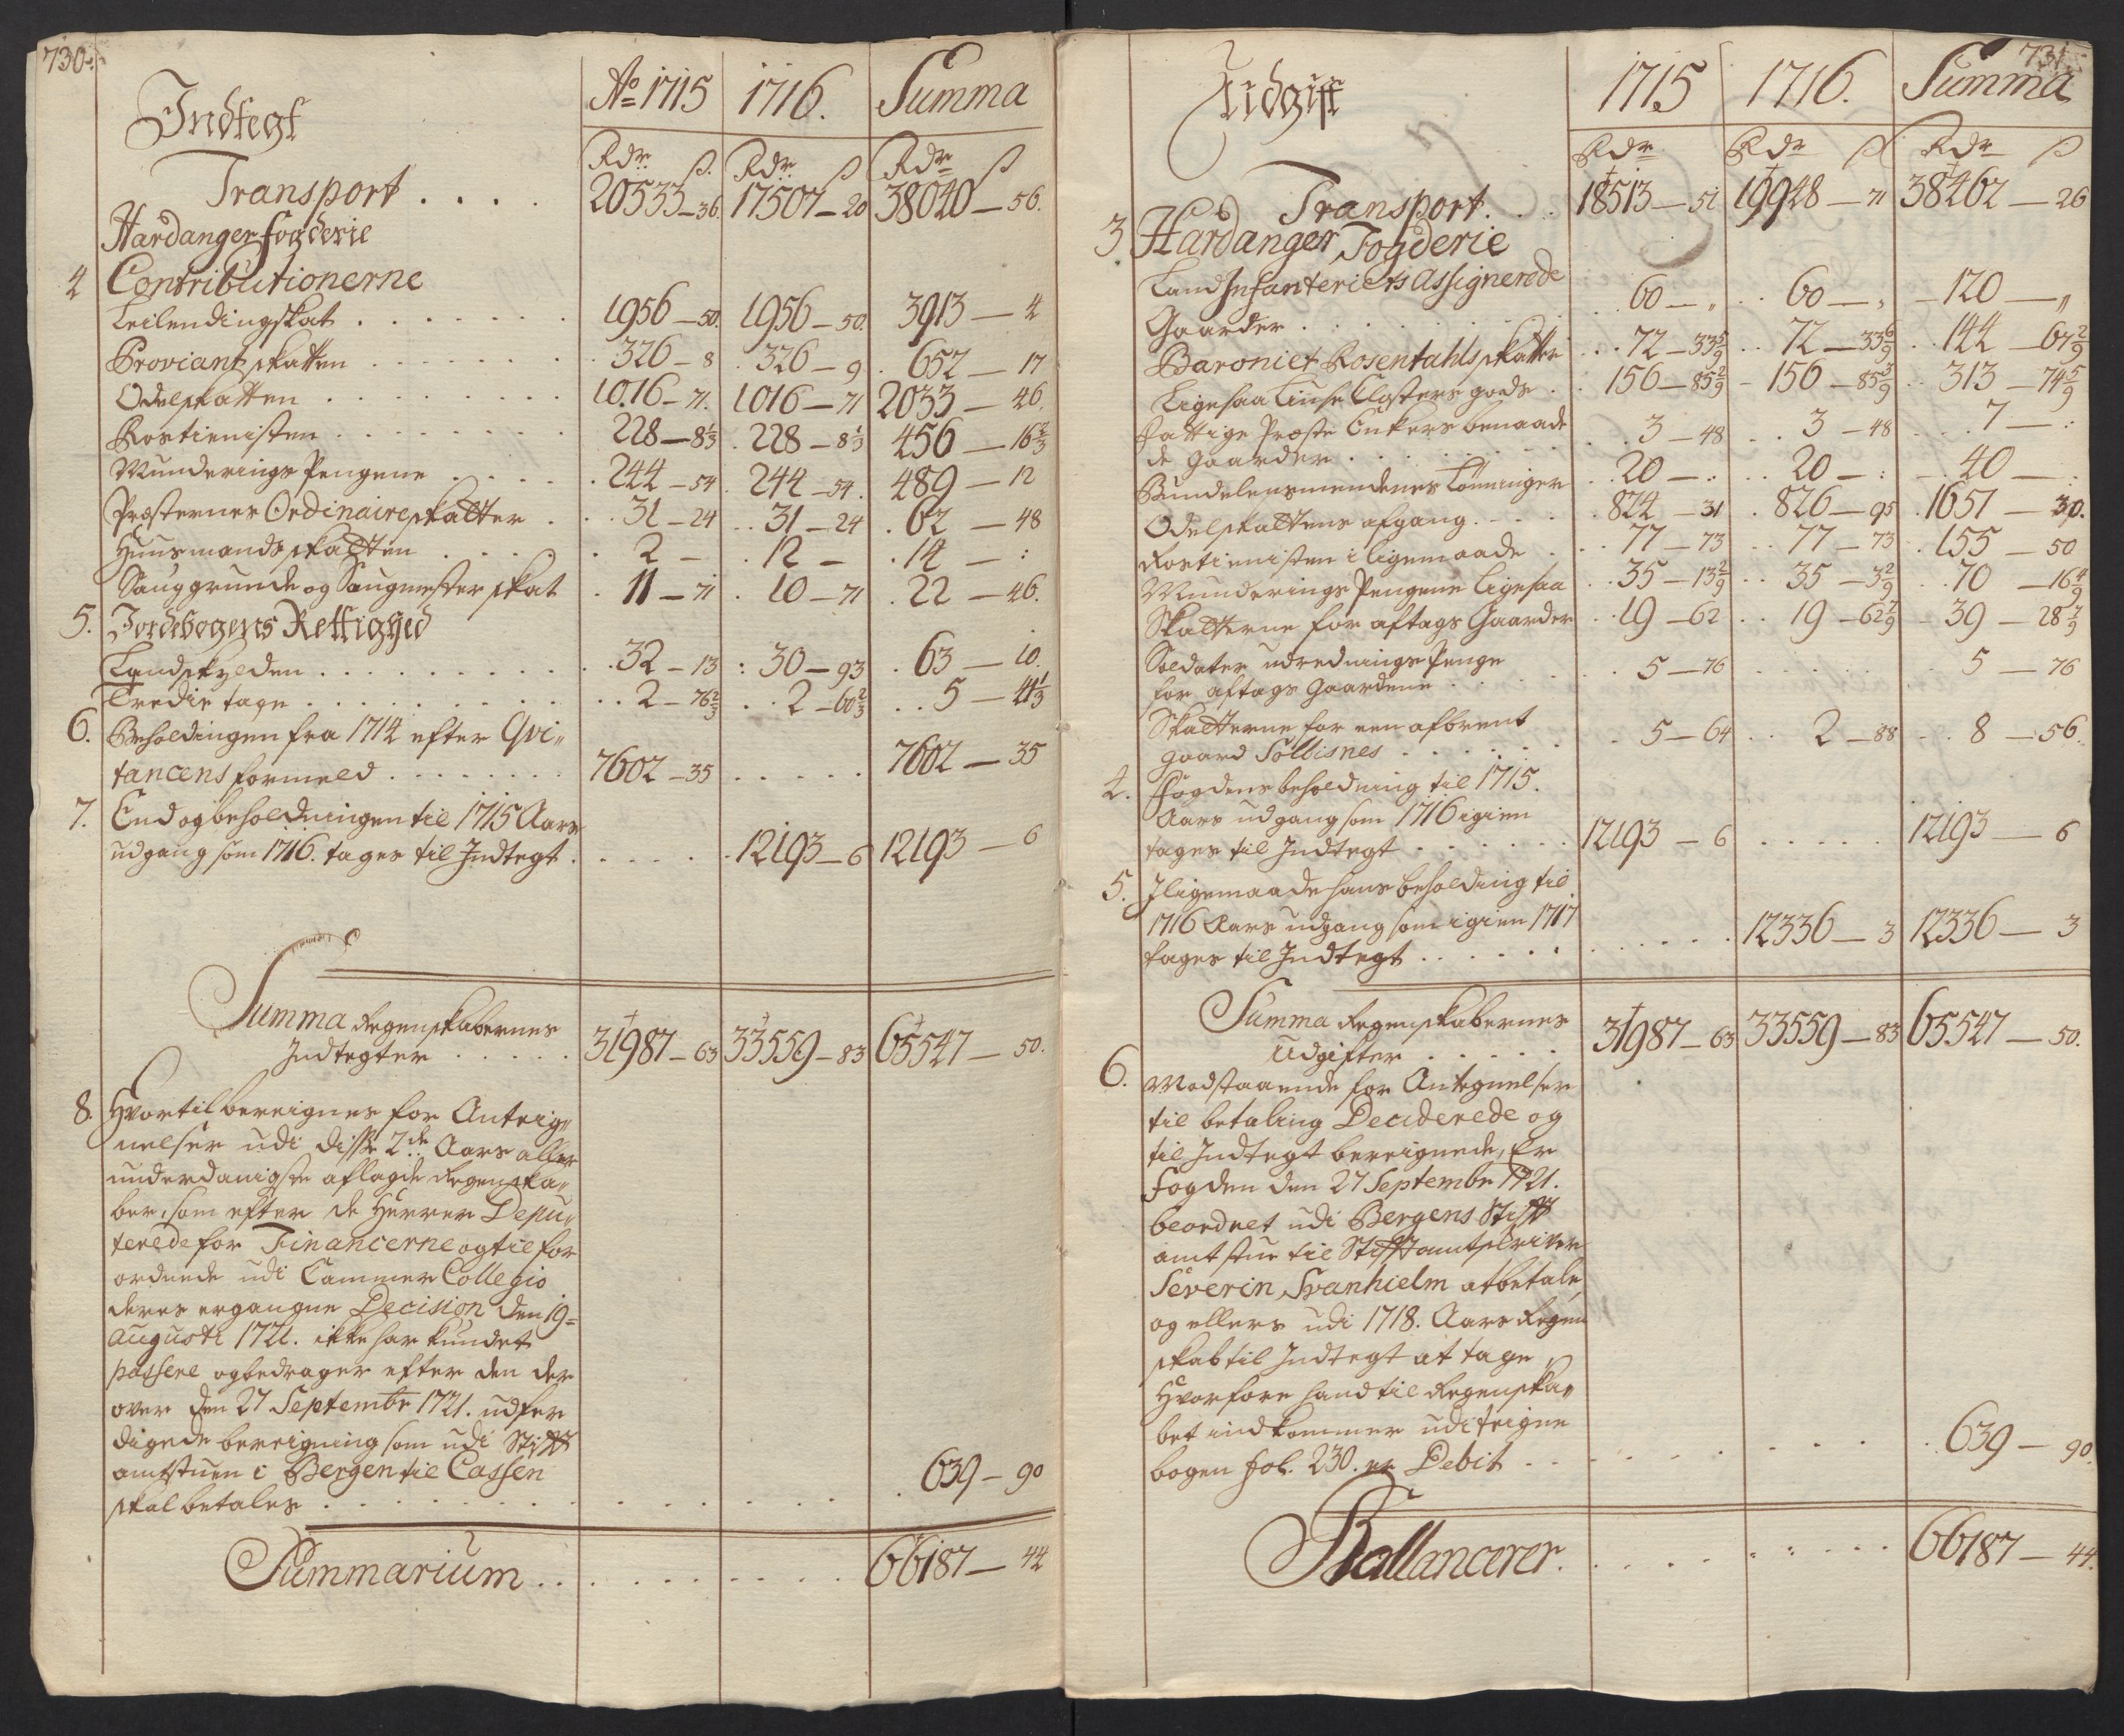 730.
Indtegt Ao 1715 1716. Summa
Rdr ß. Rdr ß Rdr ß
Transport . . . . 20533–36. 17507–20 38040–56.
Hardanger fogderie
4 Contributionerne
Leilendingskat . . . . . . 1956–50. 1956–50. 3913–4
Proviantskatten . . . . . . 326–8 . 326–9 . 652–17
Odelskatten . . . . . . . 1016–71. 1016–71 2033–46.
Rostienisten . . . . . . . 228–8 1/3 . 228–8 1/3 456–16 2/3
Munderings Pengene . . . . 244–54 . 244–54. 489–12
Præsternes Ordinaire skatter . . . 31–24 . . 31–24 . 62–48
Huusmands skatten . . . . . 2 – . 12 – . 14 – :
Sauggrunde og Saugmester skat . 11–71 . 10–71 . 22–46.
5. Jordebogens Rettighed
Landskylden . . . . . . . . 32–13 : 30–93 . 63–10.
Tredie tage . . . . . . . . 2–76 2/3 . . 2–60 2/3 . . 5–41 1/3
6. Beholdingen fra 1714 efter Qvi„
tancens formeld . . . . . . 7602–35 . . . . . 7602–35
7. End og beholdningen til 1715 Aars
udgang som 1716. tages til Indtegt . . . . . 12193–6 12193–6
Summa Regenskabernes
Indtegter . . . . . 31987–63 33559–83 65547–50.
8. Hvortil bereignes for Anteig„
nelser udi disse 2de Aars aller
underdanigste aflagde Regenska„
ber, som efter de Herrer Depu„
terede for Financerne og til for
ordnede udi Cammer Collegio
deres ergangne Decision den 19=
augusti 1721. ikke har kundet
passere og bedrager efter den der
over den 27 Septembr 1721. udfer
digede bereigning som udi Stiffts
amtstuen i Bergen til Cassen
skal betales . . . . . . . . . . 639–90
Summarium . . . . . . . . . 66187–44
731.
Udgift 1715 1716. Summa
Rdr Rdr ß Rdr ß
Transport. . . 18513–51 19948–71 38462–26
3 Hardanger Fogderie
Land Infanteriets Assignerede
Gaarder . . . . . . . . 60–„ . . 60–„ –120–„
Baroniet Rosentahls skatter . . . 72–33 5/9 . . 72–33 6/9 . . 144–67 2/9
Ligesaa Liuse Closters gods . . 156–85 2/9 – 156–85 3/9 . . 313–74 5/9
Fattige Præste Enkers benaade
de gaarder . . . . . . . . 3–48 . . 3–48 . . . 7–:
Bundelensmendenes Lönninger . . 20–: . . 20–: . . 40–.
Odelskattens afgang . . . . . 824–31 . 826–95 . 1651–30.
Rostienisten i ligemaade . . . 77–73 . . 77–73 . 155–50
Munderings Pengene Ligesaa . . 35–13 2/9 . . 35–3 2/9 . . 70–16 4/9
Skatterne for aftags Gaarder . . 19–62 . . 19–62 7/9 – 39–28 7/9
Soldater udrednings Penge
for aftags Gaardene . . . . . . 5–76 . . . . . 5–76
Skatterne for een afbrent
gaard Solbisnes . . . . . . . 5–64 . . 2–88 . . 8–56.
4. Fogdens beholdning til 1715.
Aars udgang som 1716 igien
tages til Indtegt . . . . . . 12193–6 . . . . . 12193–6
5. Iligemaade hans beholding til
1716 Aars udgang som igien 1717
tages til Indtegt . . . . . . . . . . 12336–3 12336–3
Summa Regenskabernes
Udgifter . . . . . 31987–63 33559–83 65547–50.
6. Modstaaende for Antegnelser
til betaling Deciderede og
til Indtegt bereignede, Er
Fogden den 27 Septembr 1721.
beordret udi Bergens Stiffts
amtstue til Stifftamtskriver
Severin Svanhielm at betale,
og ellers udi 1718. Aars Regen
skab til Indtegt at tage,
Hvorfore hand til Regenska„
bet ind kommer udi Reigne
bogen fol. 230. er Debit . . . . . . . . . 639–90.
Ballancerer. . . . . . . . . 66187–44.